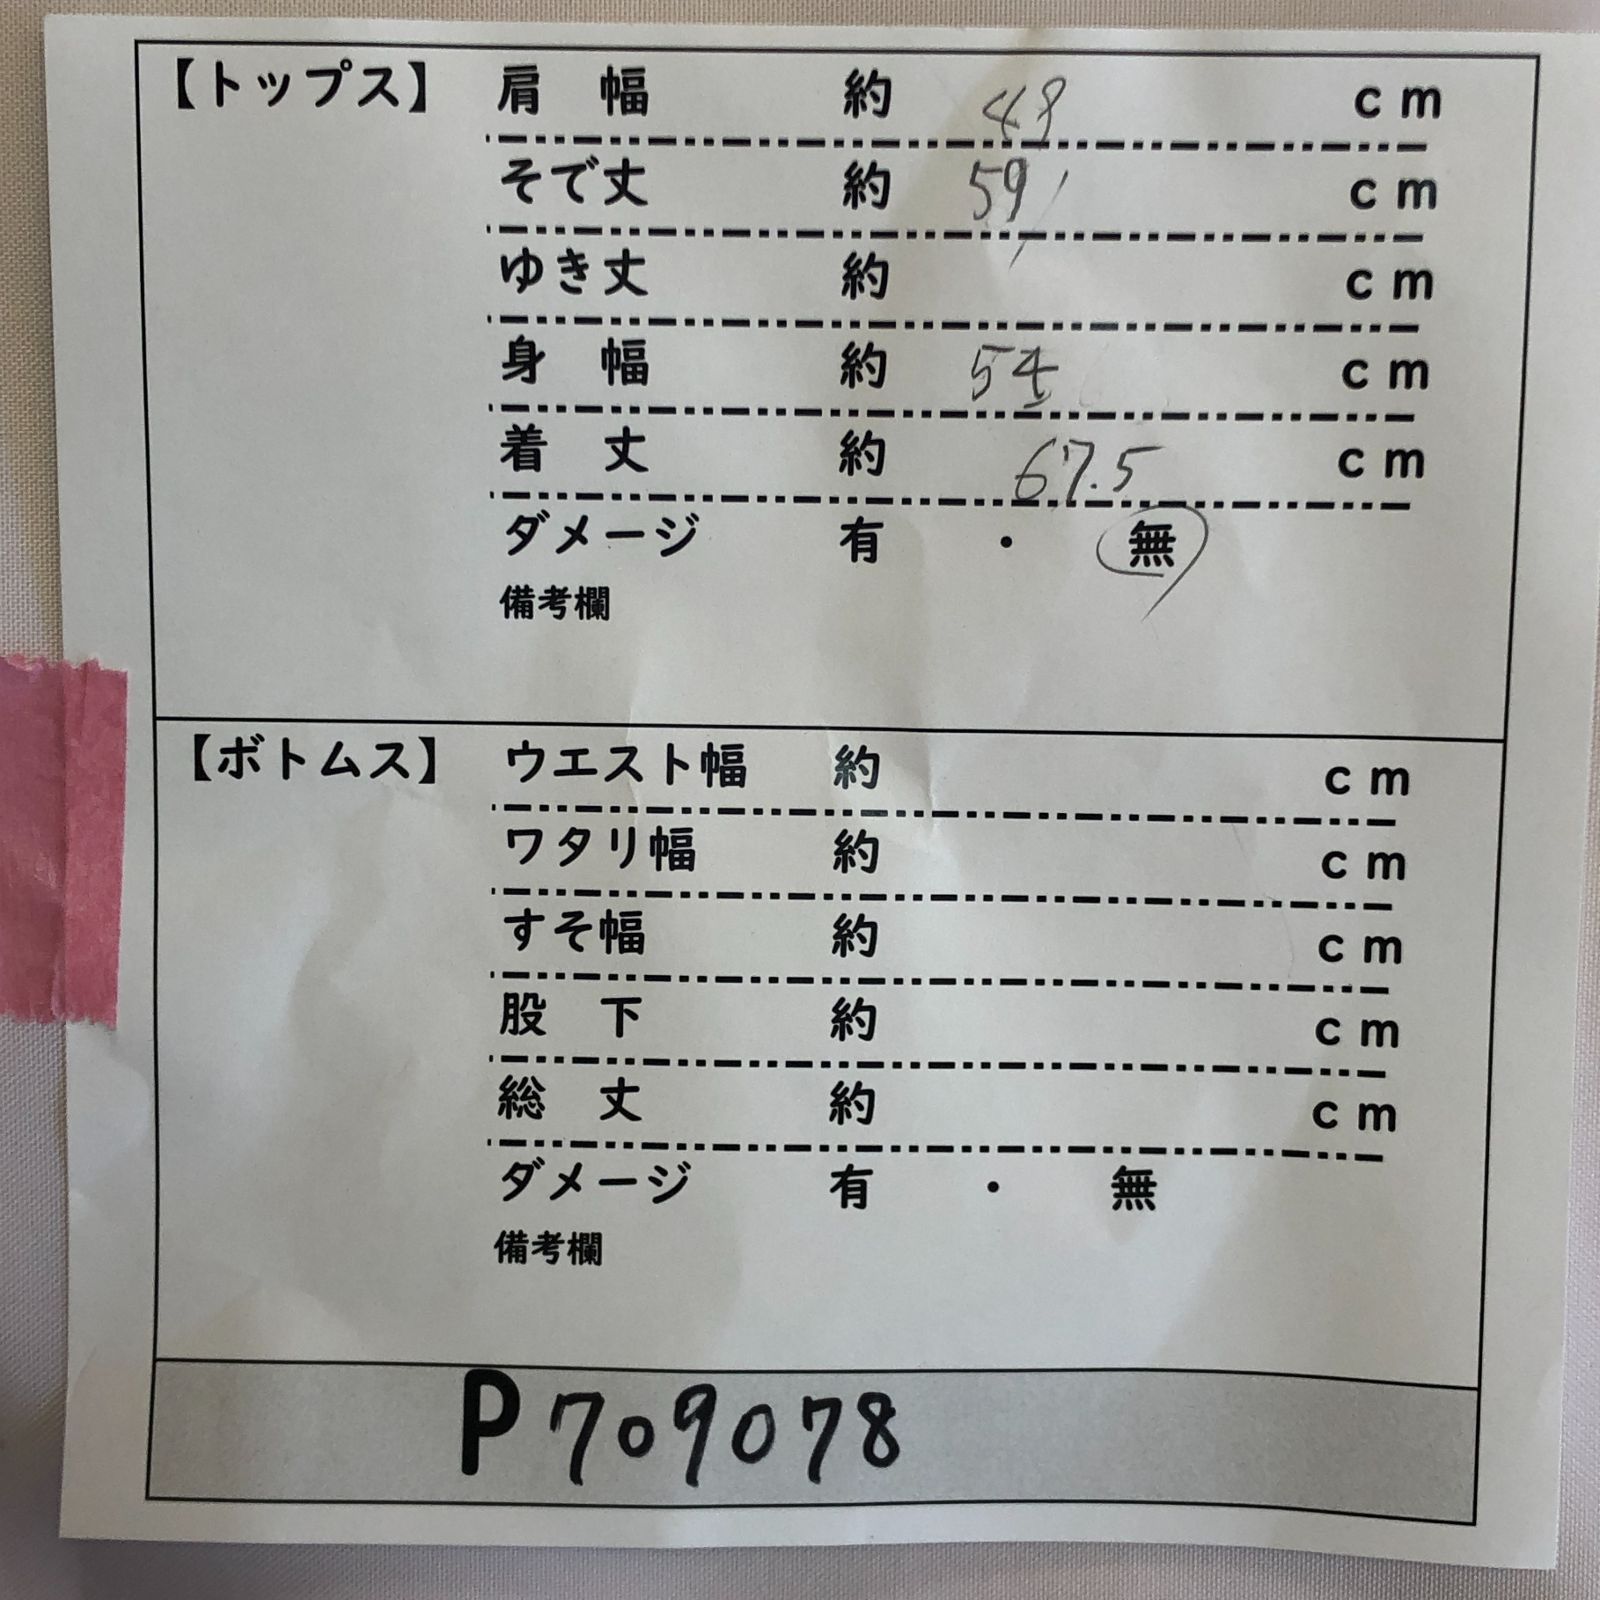 【トップス】 肩 幅 約 48 cm
そで丈 約 59 cm
ゆき丈 約 cm
身 幅 約 54 cm
着 丈 約 67.5 cm
ダメージ 有 ・ 無
備考欄
【ボトムス】 ウエスト幅 約 cm
ワタリ幅 約 cm
すそ幅 約 cm
股 下 約 cm
総 丈 約 cm
ダメージ 有 ・ 無
備考欄
P709078